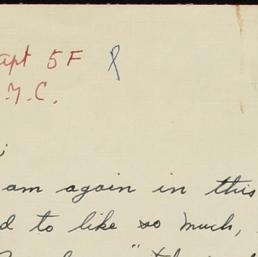 apt 5F
Y.C.
am again in this
d to like so much,